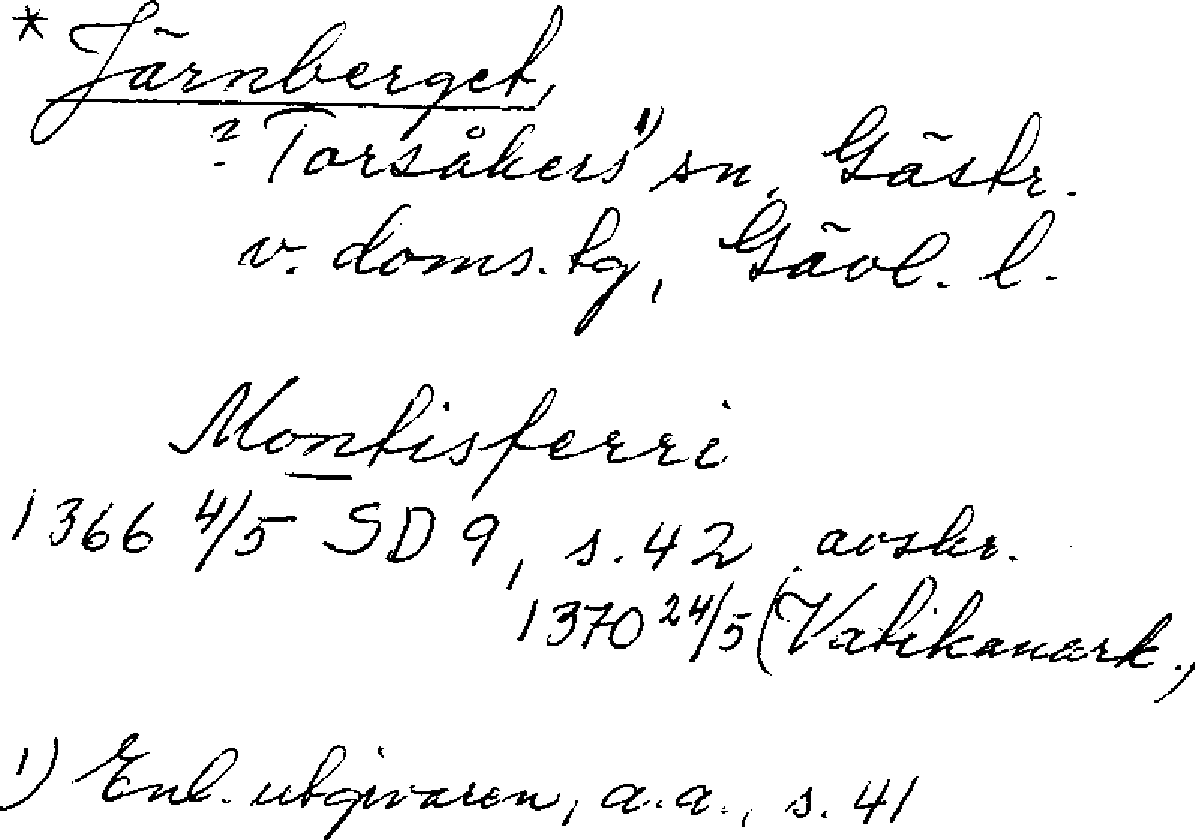 * Järnberget,
? Torsåkers 1) sn, Gästr.
v. doms. tg, Gävl. l.
Montisferri
1366 4/5 SD 9, s. 42 avskr.
1370 24/5 (Vatikanark.,
1) Enl. utgivaren, a.a., s. 41